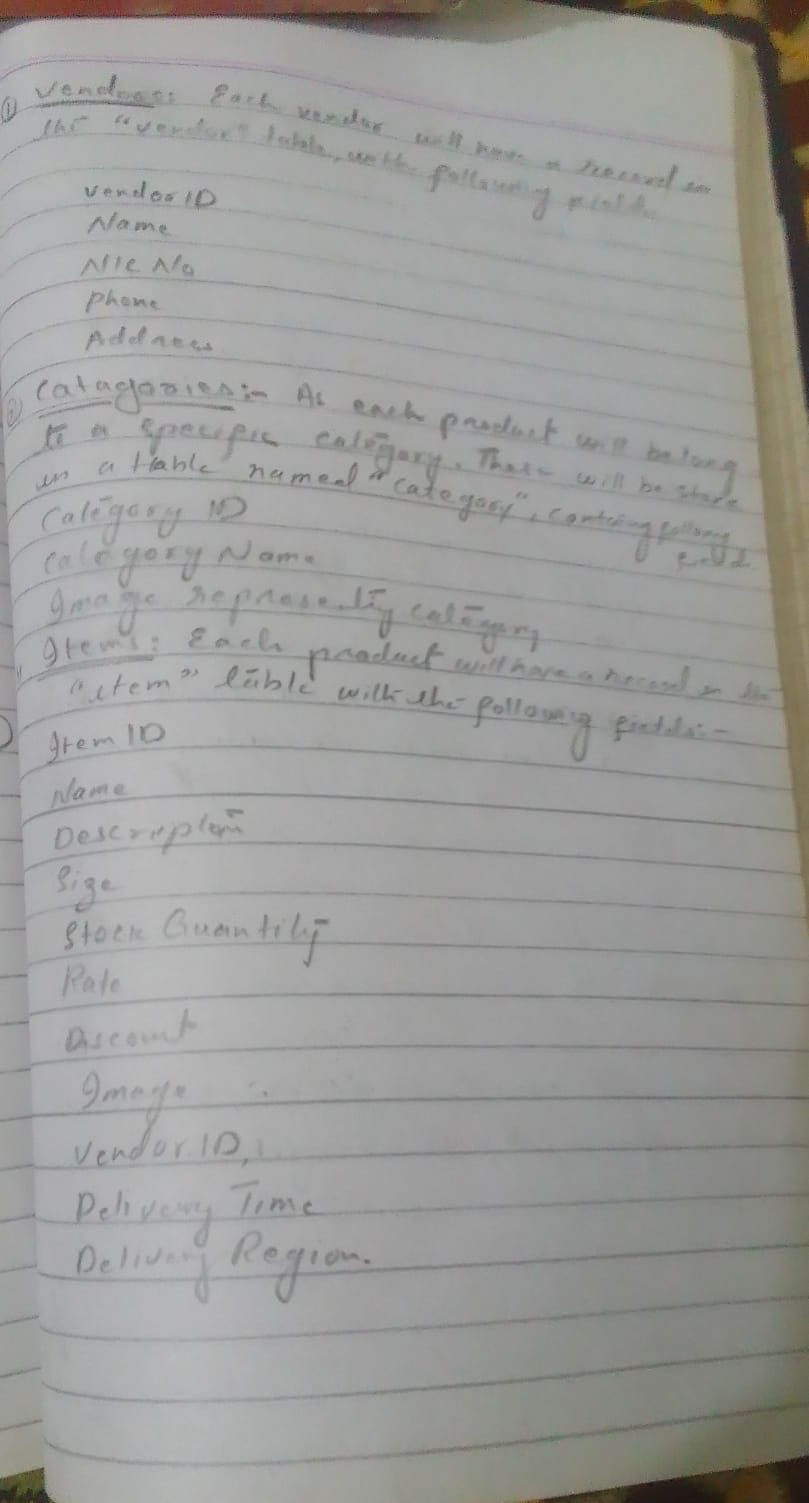 ① Vendors: Each vendor will have a record in
the "vendor" table, with following field.
vendor ID
Name
NIC No
Phone
Address
② Catagories:- As each product will belong
to a specific category. These will be store
in a table named "category", containg follong
field
Category ID
Category Name
Image representig category
Items: Each product will have a record in the
"item" table with the following fields:-
Item ID
Name
Description
Size
Stock Quantity
Rate
Discount
Image
Vendor ID,
Delivery Time
Delivery Region.